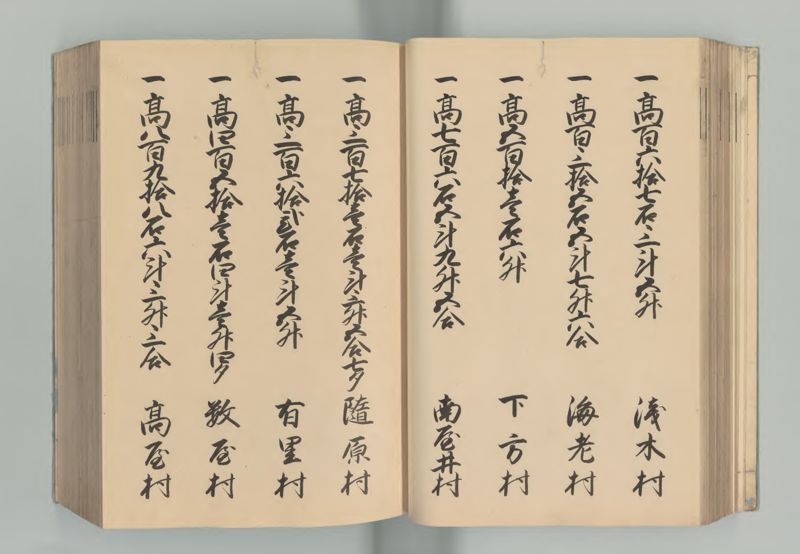 一高百六拾七石三斗五升 浅木村
一高百三拾五石五斗七升六合 海老村
一高五百拾壱石六升 下方村
一高七百六石五斗九升五合 南屋井村
一高三百七拾壱石壱斗三升五合七夕 隨原村
一高三百六拾弐石壱斗五升 有里村
一高四百五拾壱石四斗壱升四夕 数屋村
一高八百九拾八石六斗三升三合 高屋村